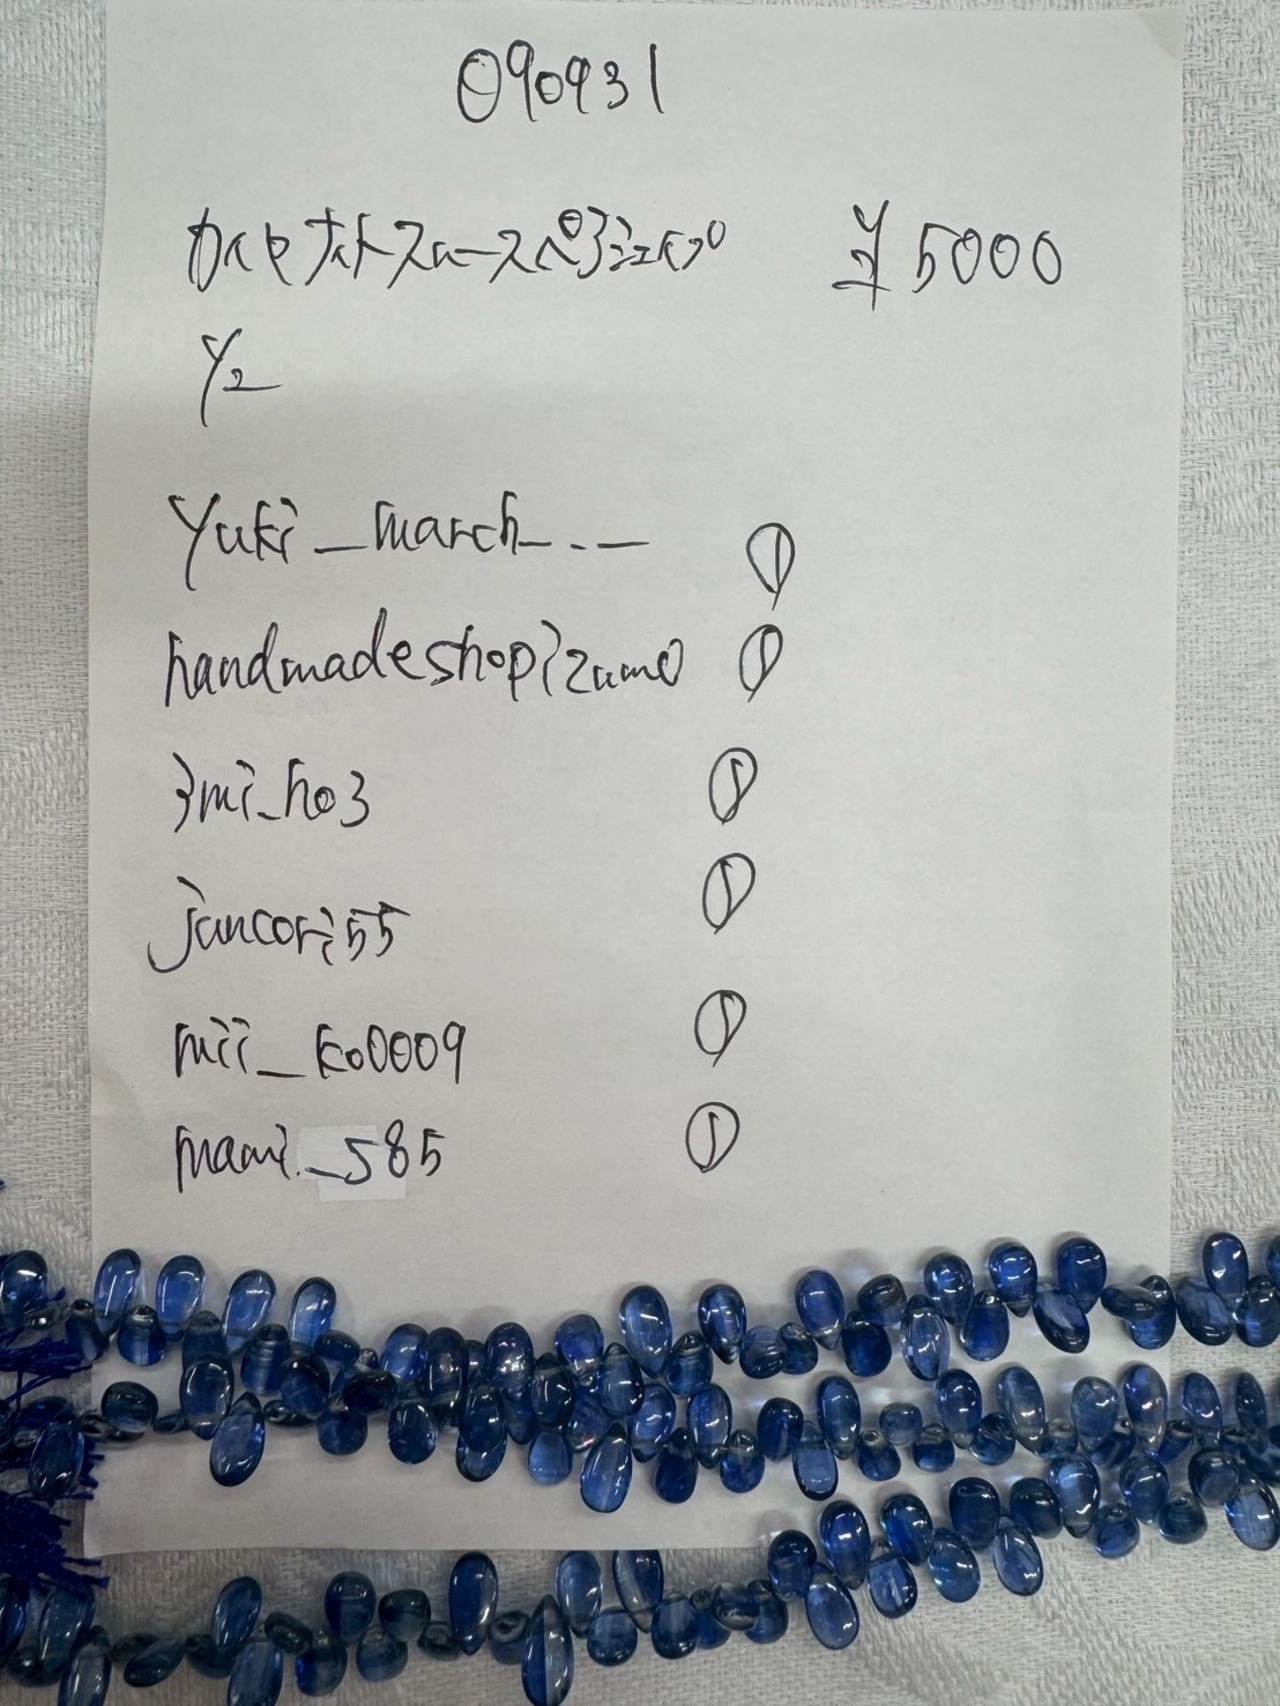 090931
カイヤナイトスムースペアシェイプ ¥5000
Y2
Yuki_march_._
handmadeshopizumo ①
3mi_ho3 ①
juncori55 ①
mii_ko0009 ①
mami_585 ①